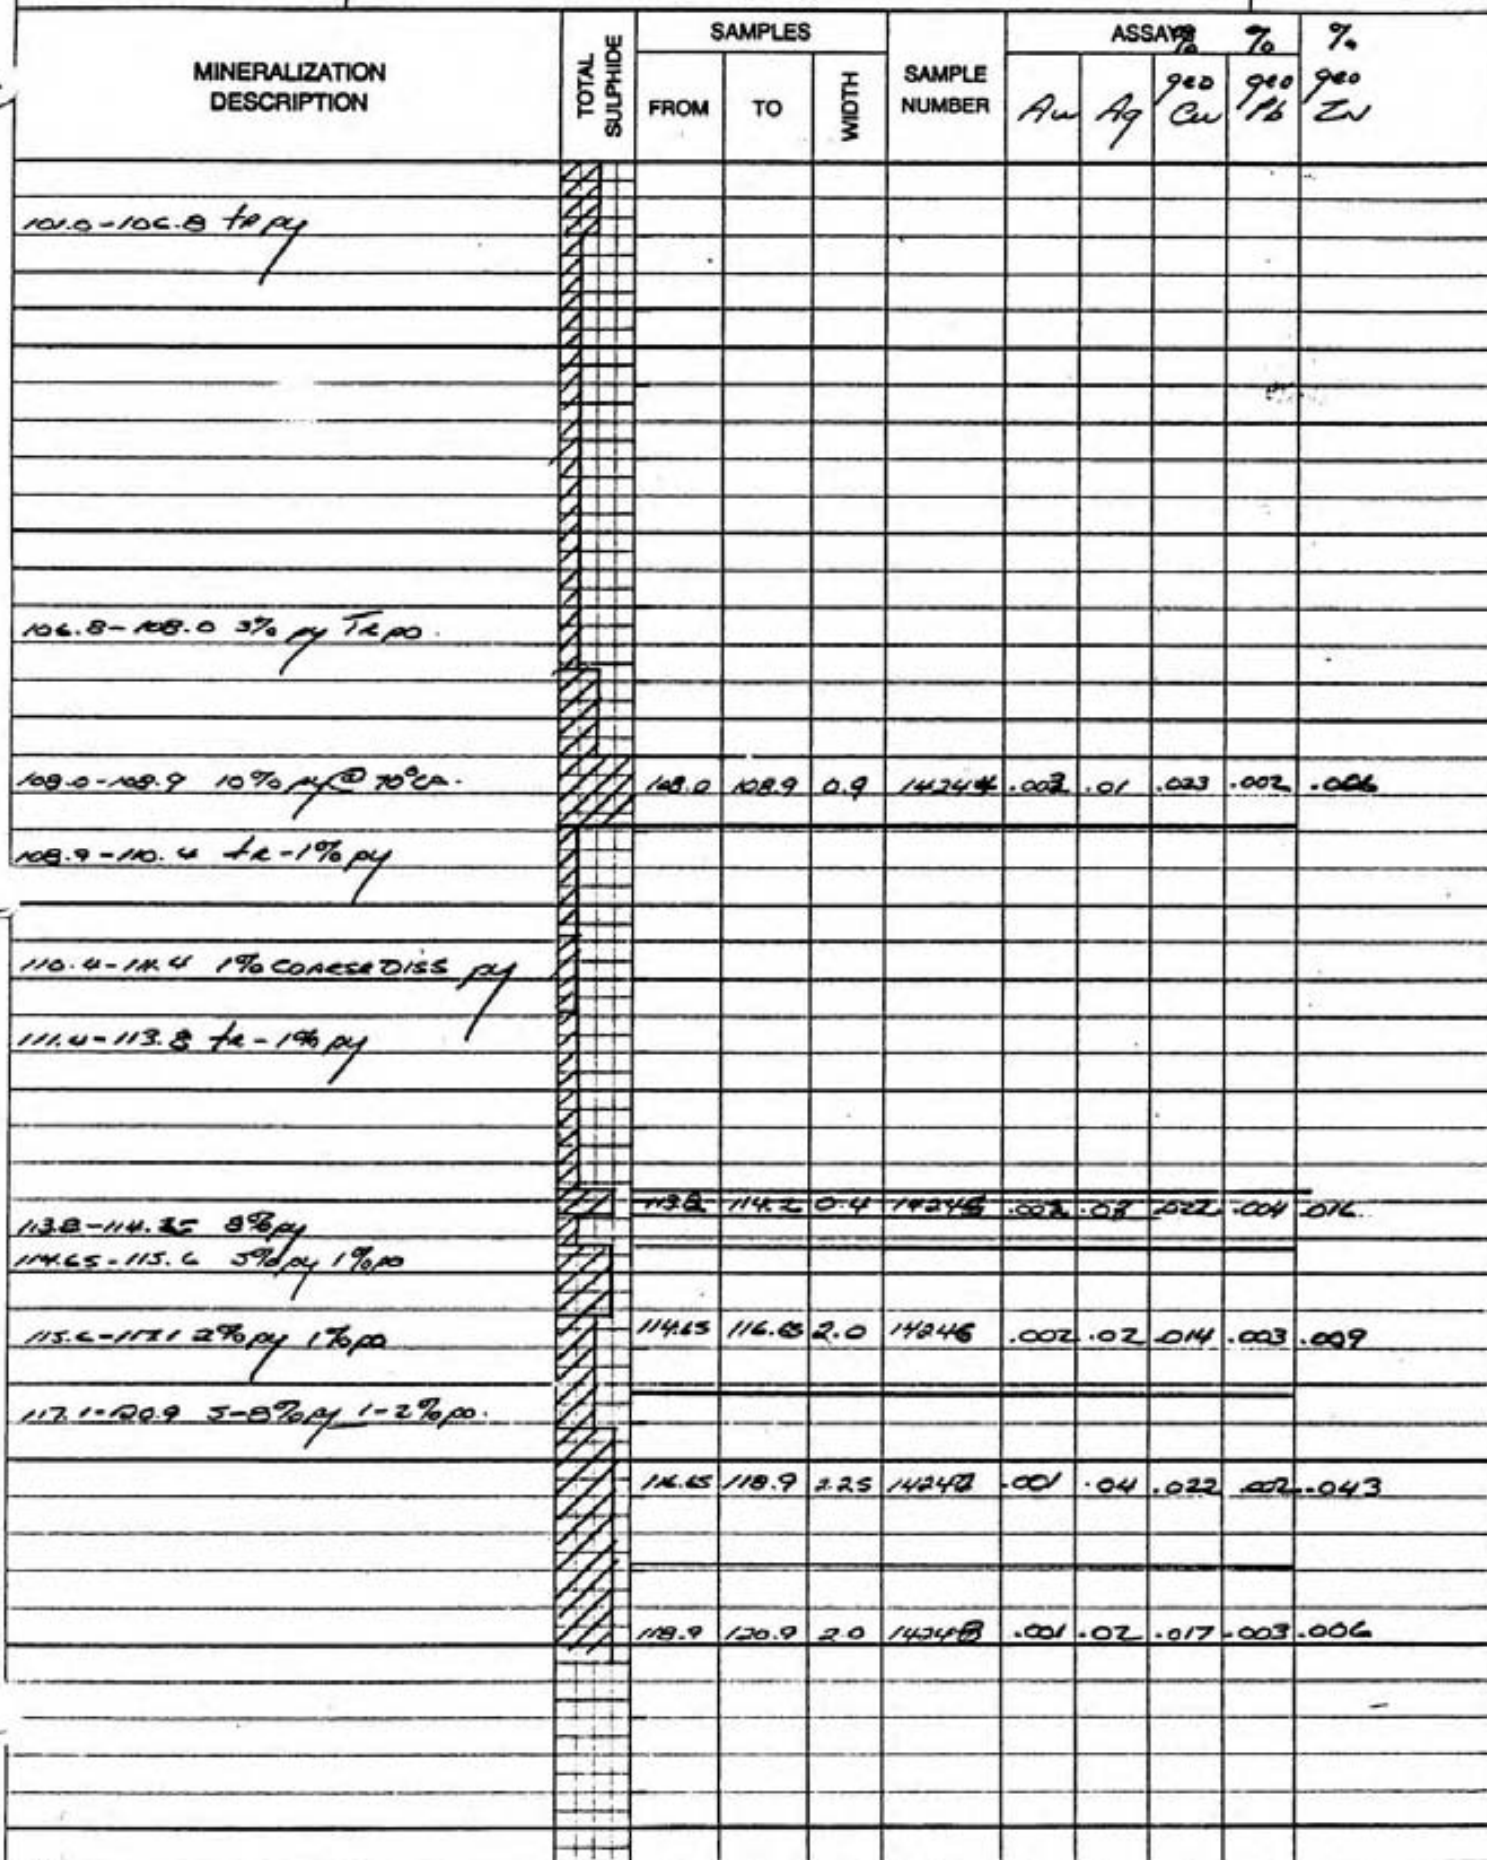 MINERALIZATION DESCRIPTION TOTAL SULPHIDE SAMPLES SAMPLE NUMBER ASSAYS % % %
FROM TO WIDTH Au Ag geo Cu geo Pb geo Zn
101.0-106.8 tr py
106.8-108.0 3% py Tr po.
108.0-108.9 10% py @ 70° CA. 108.0 108.9 0.9 14244 .002 .01 .023 .002 .006
108.9-110.4 tr-1% py
110.4-111.4 1% COARSE DISS py
111.4-113.8 tr-1% py
113.8 114.2 0.4 14245 .002 .022 .004 .016
113.8- 8% py
114.65-115.6 5% py 1% po
115.6-117.1 2% py 1% po 114.65 116.65 2.0 14246 .002 .02 .014 .003 .009
117.1-120.9 5-8% py 1-2% po.
116.65 118.9 2.25 14247 .001 .04 .022 .002 .043
118.9 120.9 2.0 14248 .001 .02 .017 .003 .006